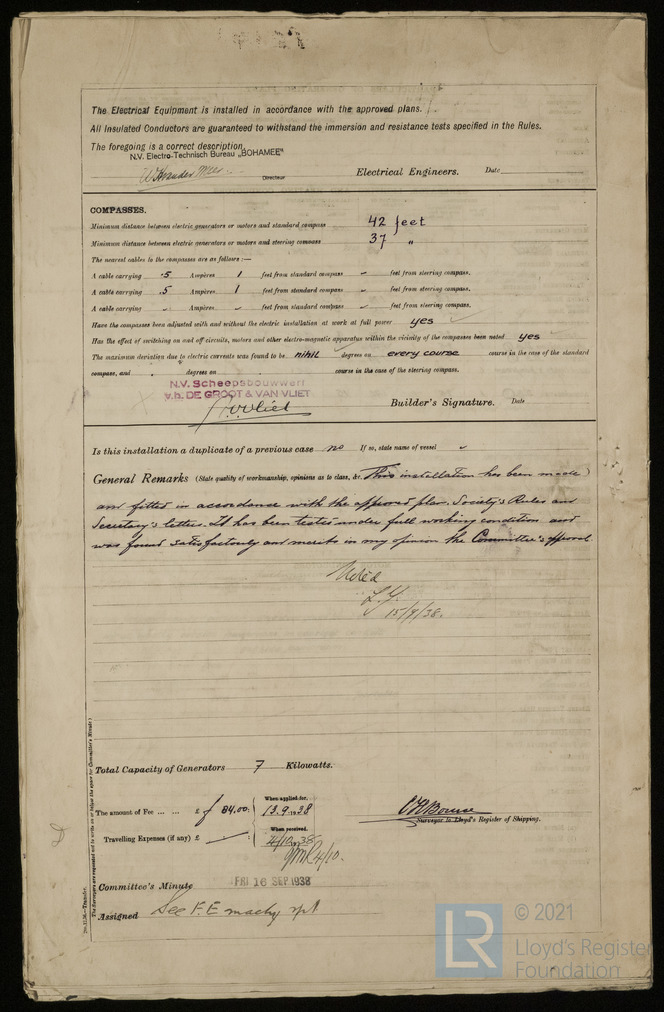 The Electrical Equipment is installed in accordance with the approved plans.
All Insulated Conductors are guaranteed to withstand the immersion and resistance tests specified in the Rules.
The foregoing is a correct description,
N.V. Electro-Technisch Bureau „BOHAMEE"
Directeur Electrical Engineers. Date
COMPASSES.
Minimum distance between electric generators or motors and standard compass 42 feet
Minimum distance between electric generators or motors and steering compass 37 "
The nearest cables to the compasses are as follows:—
A cable carrying .5 Ampères 1 feet from standard compass feet from steering compass.
A cable carrying .5 Ampères 1 feet from standard compass feet from steering compass.
A cable carrying Ampères feet from standard compass feet from steering compass.
Have the compasses been adjusted with and without the electric installation at work at full power yes
Has the effect of switching on and off circuits, motors and other electro-magnetic apparatus within the vicinity of the compasses been noted yes
The maximum deviation due to electric currents was found to be nihil degrees on every course course in the case of the standard
compass, and degrees on course in the case of the steering compass.
N.V. Scheepsbouwwerf
v.h. DE GROOT & VAN VLIET
Builder's Signature. Date
Is this installation a duplicate of a previous case no If so, state name of vessel
General Remarks (State quality of workmanship, opinions as to class, &c. This installation has been made
and fitted in accordance with the approved plan, Society's Rules and
Secretary's letter. It has been tested under full working condition and
was found satisfactorily and merits in my opinion the Committee's approval.
Noted
15/9/38.
Total Capacity of Generators 7 Kilowatts.
The amount of Fee ... ... £ ƒ 84.00: When applied for, 13.9.1938
Travelling Expenses (if any) £ When received, 4/10 1938
4/10.
Surveyor to Lloyd's Register of Shipping.
Committee's Minute FRI 16 SEP 1938
Assigned See F.E. machy rpt
(The Surveyors are requested not to write on or below the space for Committee's Minute.)
© 2021
LR
Lloyd's Register
Foundation